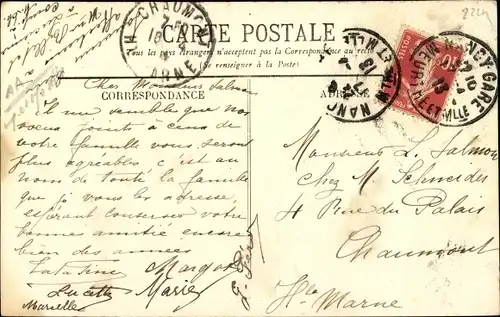 CARTE POSTALE
Tous les pays étrangers n'acceptent pas la Correspondance au recto
(Se renseigner à la Poste)
CORRESPONDANCE
ADRESSE
CHAUMONT
Hte MARNE
NANCY GARE
MEURTHE ET MLLE
10
Cher Monsieur Salmon
Il me semble que nos
voeux joints à ceux de
votre famille vous seront
plus agréables c'est au
nom de toute la famille
que je vous les adresse,
espérant conserver votre
bonne amitié encore
bien des années
Margot
Lucette Marie
Marcelle
G. 
Monsieur L. Salmon
chez M. Schneider
4 Rue du Palais
Chaumont
Hte Marne